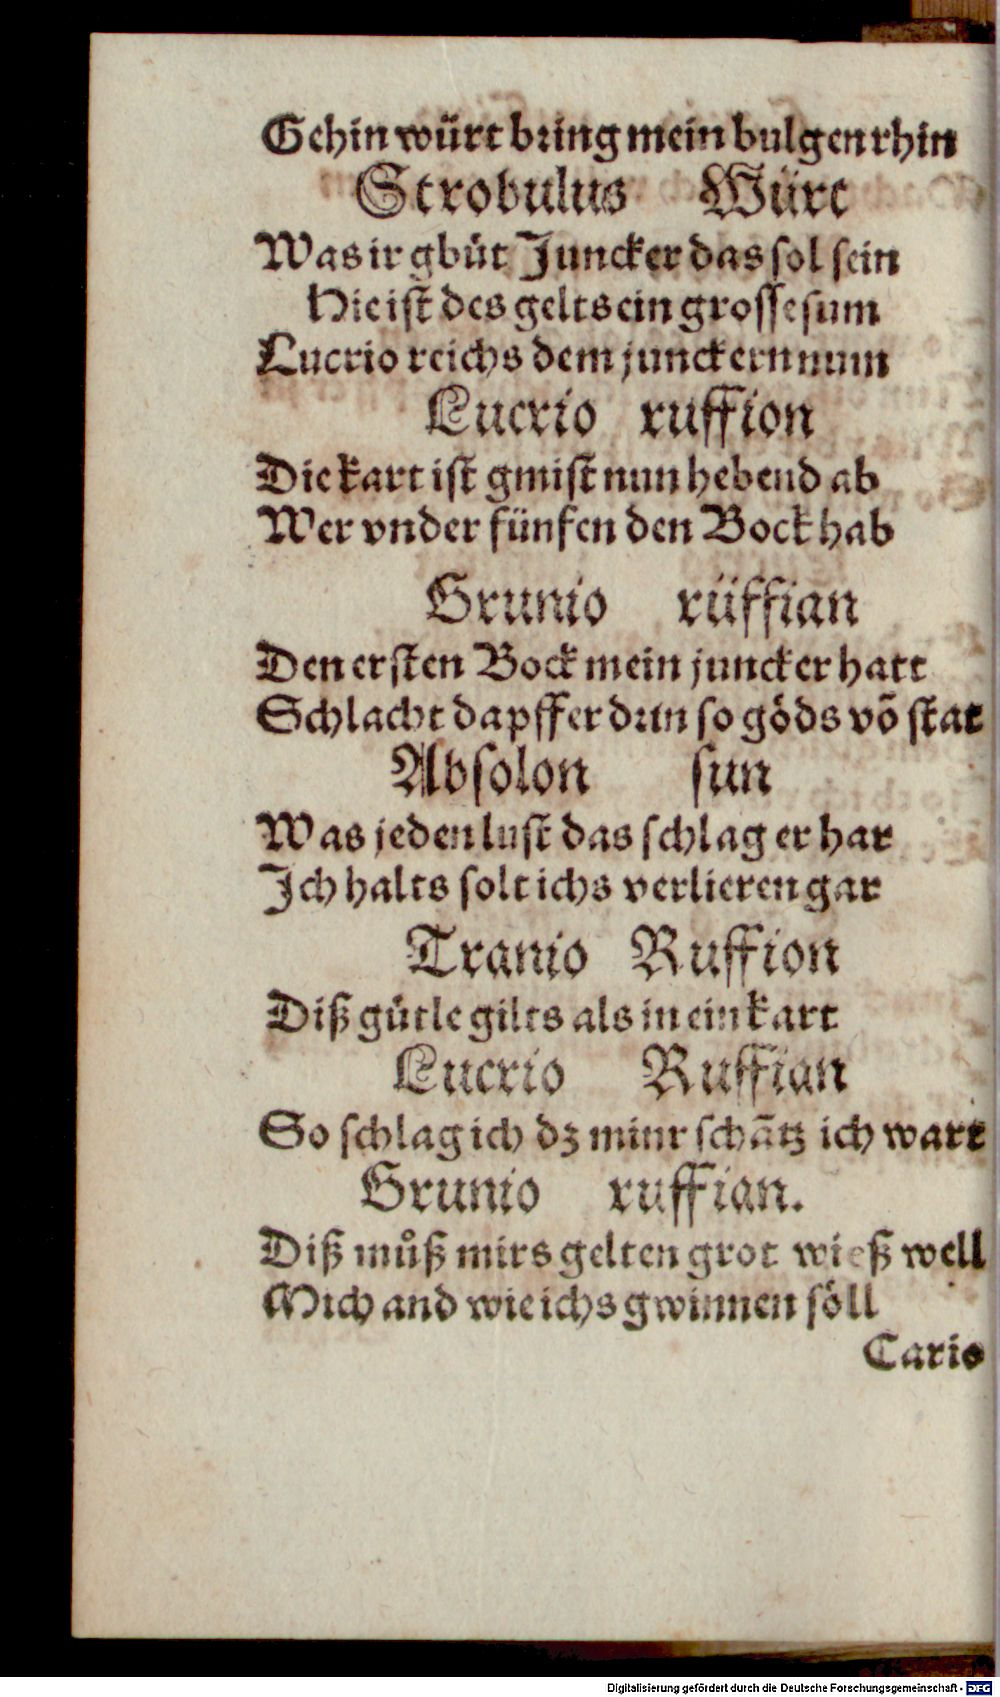 Gehin würt bring mein bulgen rhin
Strobulus Würt
Was ir gbüt Juncker das sol sein
Hie ist des gelts ein grosse sum
Lucrio reichs dem junckern num
Lucrio ruffion
Die kart ist gmist nun hebend ab
Wer vnder fünfen den Bock hab
Grunio rüffian
Den ersten Bock mein juncker hatt
Schlacht dapffer drin so göds võ stat
Absolon sun
Was jeden lust das schlag er har
Ich halts solt ichs verlieren gar
Tranio Ruffion
Diß gütle gilts als in ein kart
Lucrio Ruffian
So schlag ich dz minr schãtz ich wart
Grunio ruffian.
Diß můß mirs gelten grot wieß well
Mich and wie ichs gwinnen söll
Caris
Digitalisierung gefördert durch die Deutsche Forschungsgemeinschaft - DFG